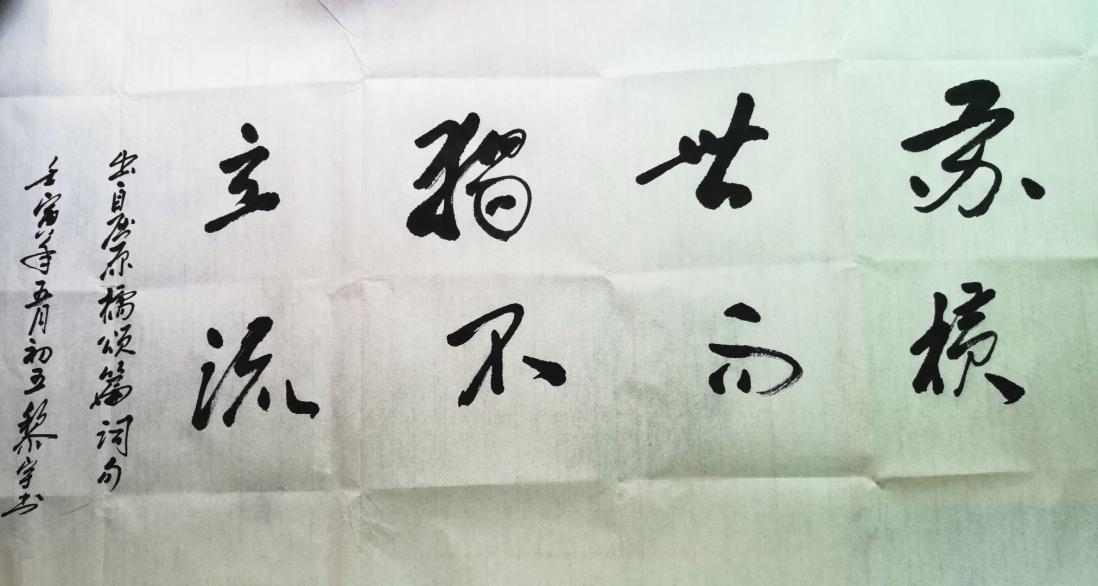 苏世独立
横而不流
出自屈原橘颂篇词句
壬寅年五月初五黎宇书